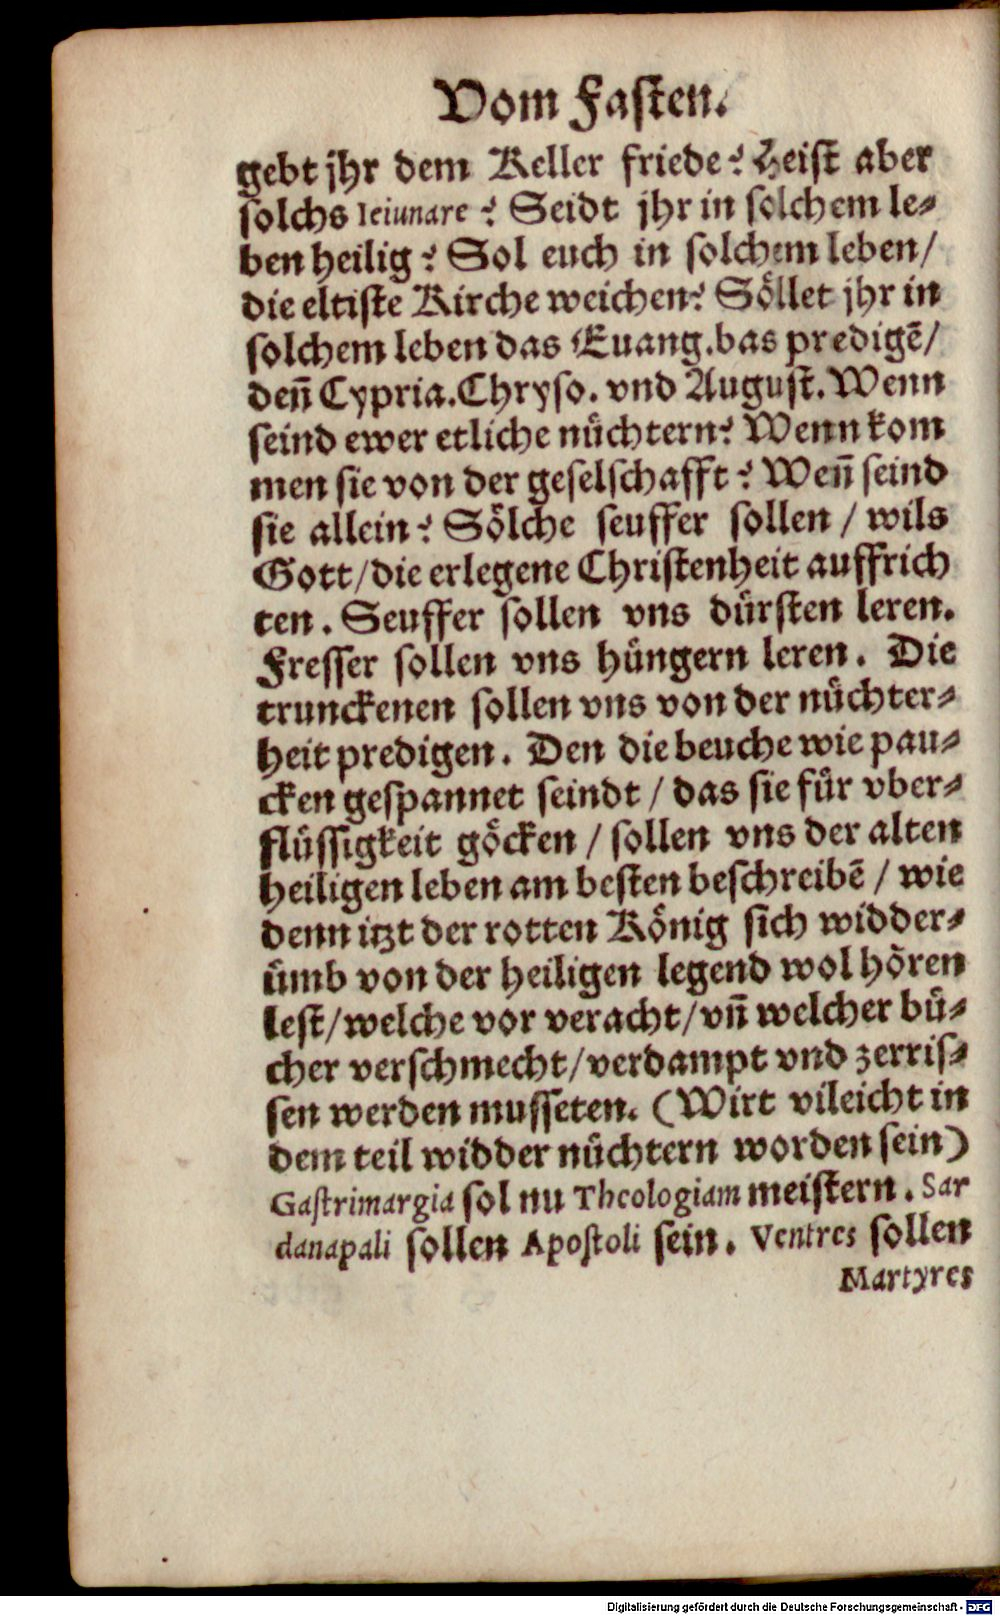 Vom Fasten.
gebt jhr dem Keller friede? Heist aber
solchs Ieiunare? Seidt jhr in solchem le-
ben heilig? Sol euch in solchem leben/
die eltiste Kirche weichen? Söllet jhr in
solchem leben das Euang. bas predigē/
deñ Cypria. Chryso. vnd August. Wenn
seind ewer etliche nüchtern? Wenn kom
men sie von der geselschafft? Weñ seind
sie allein? Sölche seuffer sollen / wils
Gott/die erlegene Christenheit auffrich
ten. Seuffer sollen vns dürsten leren.
Fresser sollen vns hüngern leren. Die
trunckenen sollen vns von der nüchter-
heit predigen. Den die beuche wie pau-
cken gespannet seindt / das sie für vber-
flüssigkeit göcken / sollen vns der alten
heiligen leben am besten beschreibē / wie
denn itzt der rotten König sich widder-
ümb von der heiligen legend wol hören
lest/welche vor veracht/vñ welcher bü-
cher verschmecht/verdampt vnd zerris-
sen werden musseten. (Wirt vileicht in
dem teil widder nüchtern worden sein)
Gastrimargia sol nu Theologiam meistern. Sar
danapali sollen Apostoli sein. Ventres sollen
Martyres
Digitalisierung gefördert durch die Deutsche Forschungsgemeinschaft - DFG